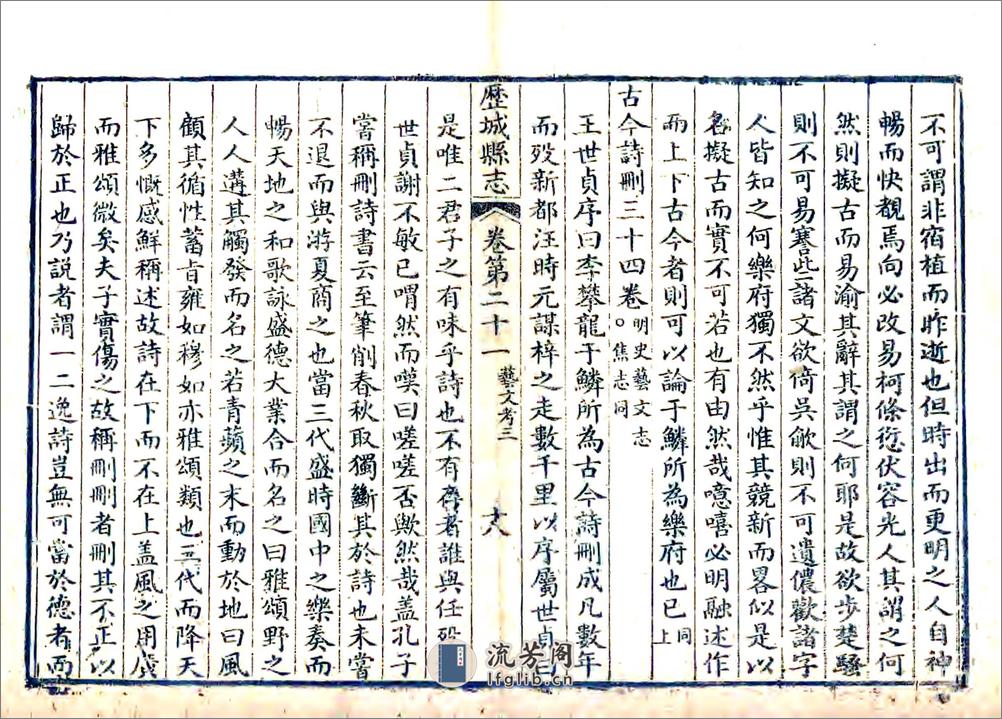 不可謂非宿植而昨逝也但時出而更明之人自神
暢而快覩焉向必改易柯條衍伏容光人其謂之何
然則擬古而易渝其辭其謂之何耶是故欲步楚騷
則不可易謇些諸文欲倚吳歈則不可遺儂歡諸字
人皆知之何樂府獨不然乎惟其競新而畧似是以
名擬古而實不可若也有由然哉噫嘻必明融述作
而上下古今者則可以論于鱗所為樂府也已同上
古今詩刪三十四卷明史藝文志○焦志同
王世貞序曰李攀龍于鱗所為古今詩刪成凡數年
而歿新都汪時元謀梓之走數千里以序屬世貞曰
歷城縣志 卷第二十一 藝文考三 十八
是唯二君子之有味乎詩也不有膺者誰與任歿
世貞謝不敏已喟然而嘆曰嗟嗟否歟然哉盖孔子
嘗稱刪詩書云至筆削春秋取獨斷其於詩也未嘗
不退而與游夏商之也當三代盛時國中之樂奏而
暢天地之和歌詠盛德大業合而名之曰雅頌野之
人人遘其觸發而名之若青蘋之末而動於地曰風
顧其循性蓄旨雍如穆如亦雅頌類也三代而降天
下多慨感鮮稱述故詩在下而不在上盖風之用廣
而雅頌微矣夫子實傷之故稱刪刪者刪其不正以
歸於正也乃說者謂一二逸詩豈無可當於德者而
流芳阁
lfglib.cn